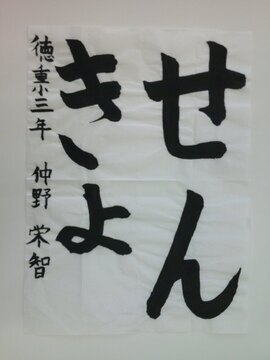 せん
きょ
徳重小三年 仲野 栄智